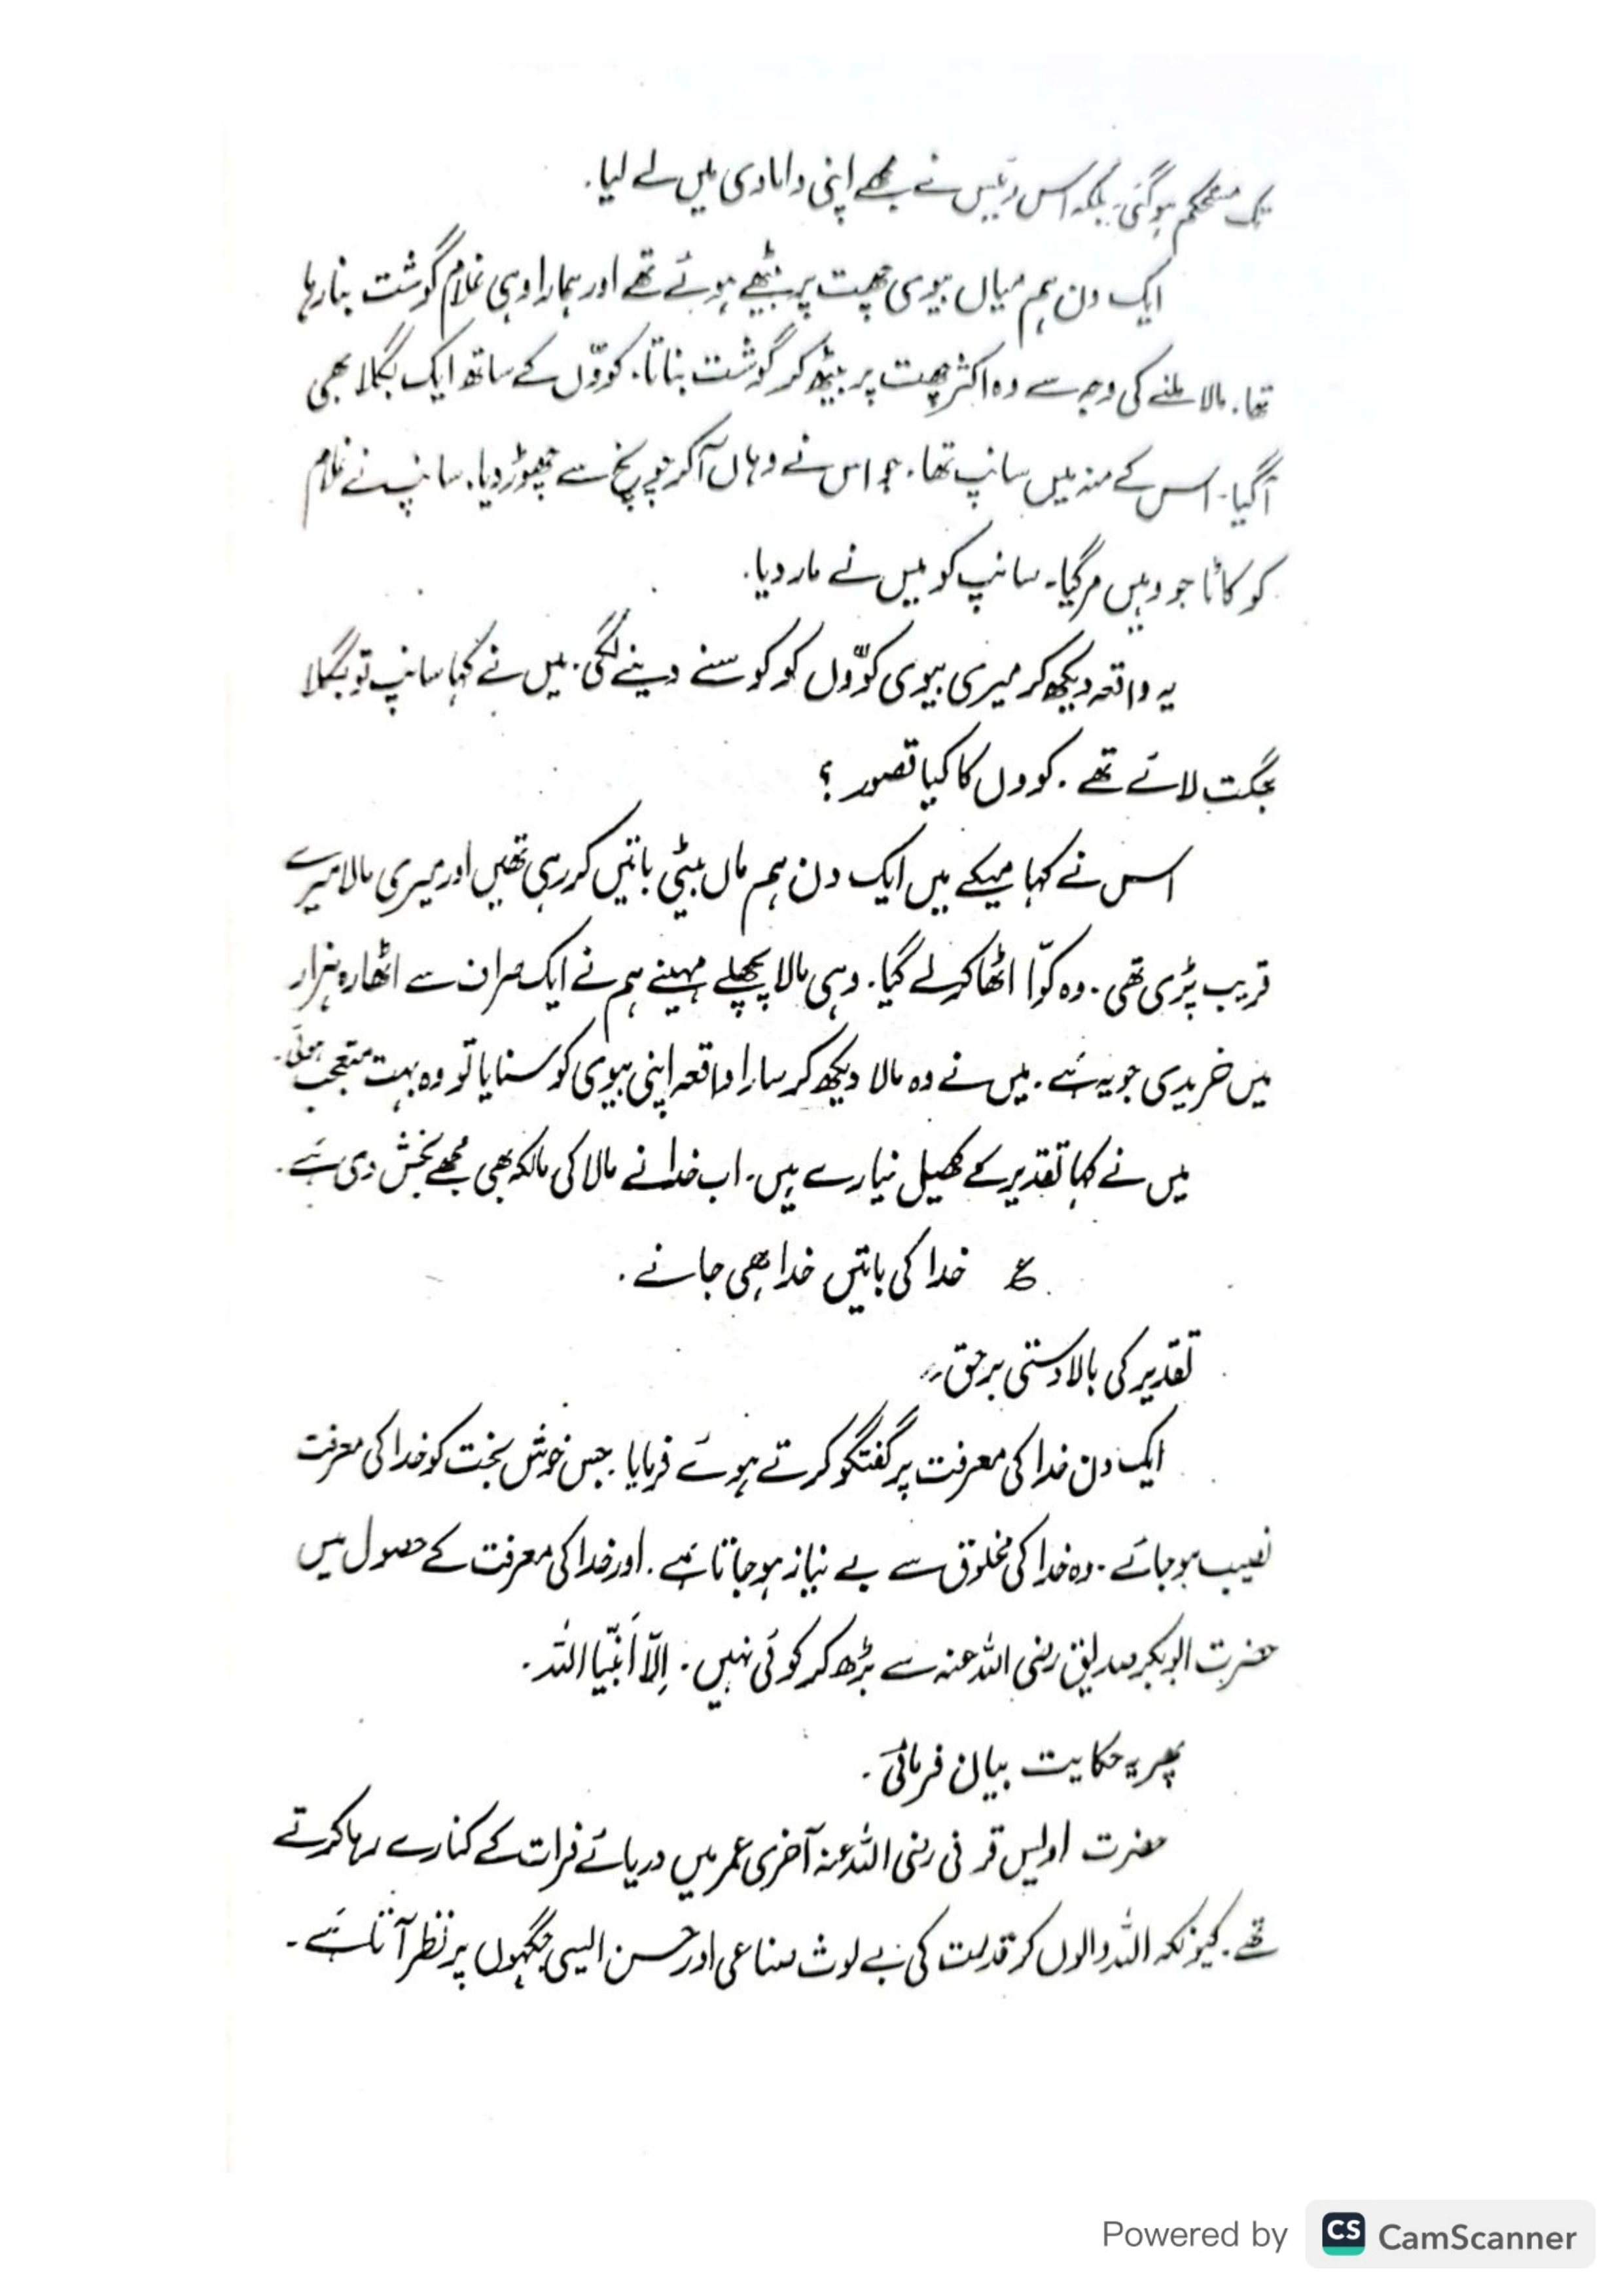 تک مستحکم ہوگئی۔ بلکہ اس رئیس نے مجھے اپنی دامادی میں لے لیا۔
ایک دن ہم میاں بیوی چھت پر بیٹھے ہوئے تھے اور ہمارا وہی غلام گوشت بنا رہا
تھا۔ مالا ملنے کی وجہ سے وہ اکثر چھت پر بیٹھ کر گوشت بناتا۔ کوّوں کے ساتھ ایک بگلا بھی
آگیا۔ اس کے منہ میں سانپ تھا۔ جو اس نے وہاں آکر چونچ سے چھوڑ دیا۔ سانپ نے غلام
کو کاٹا جو وہیں مرگیا۔ سانپ کو میں نے مار دیا۔
یہ واقعہ دیکھ کر میری بیوی کوّوں کو کوسنے دینے لگی۔ میں نے کہا سانپ تو بگلا
بھگت لائے تھے۔ کووں کا کیا قصور؟
اس نے کہا میکے میں ایک دن ہم ماں بیٹی باتیں کررہی تھیں اور میری مالا میرے
قریب پڑی تھی۔ وہ کوّا اٹھا کر لے گیا۔ وہی مالا پچھلے مہینے ہم نے ایک صراف سے اٹھارہ ہزار
میں خریدی جو یہ ہے۔ میں نے وہ مالا دیکھ کر سارا واقعہ اپنی بیوی کو سنایا تو وہ بہت متعجب ہوئی۔
میں نے کہا تقدیر کے کھیل نیارے ہیں۔ اب خدا نے مالا کی مالکہ بھی مجھے بخش دی ہے۔
ع خدا کی باتیں خدا ہی جانے۔
تقدیر کی بالادستی برحق۔
ایک دن خدا کی معرفت پر گفتگو کرتے ہوئے فرمایا۔ جس خوش بخت کو خدا کی معرفت
نصیب ہوجائے۔ وہ خدا کی مخلوق سے بے نیاز ہوجاتا ہے۔ اور خدا کی معرفت کے حصول میں
حضرت ابوبکر صدیق رضی اللہ عنہ سے بڑھ کر کوئی نہیں۔ اِلّا اَنبیّا اللہ۔
پھر یہ حکایت بیان فرمائی۔
حضرت اویس قرنی رضی اللہ عنہ آخری عمر میں دریائے فرات کے کنارے رہا کرتے
تھے۔ کیونکہ اللہ والوں کو قدرت کی بے لوث صناعی اور حسن ایسی جگہوں پر نظر آتا ہے۔
Powered by CS CamScanner